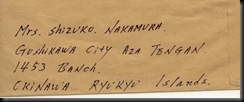 Mrs. SHIZUKO. NAKAMURA.
GUSHIKAWA CITY AZA TENGAN.
1453 BANCH.
OKINAWA RYUKYU Islands.